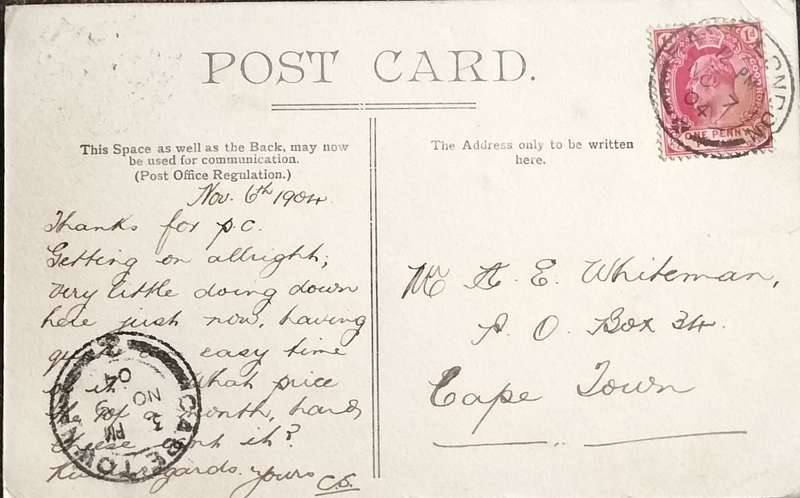 POST CARD.
This Space as well as the Back, may now
be used for communication.
(Post Office Regulation.)
The Address only to be written
here.
Nov. 6th 1904.
Thanks for p.c.
Getting on allright;
very little doing down
here just now, having
easy time
What price
month,
it?
regards. yours
C.S.
Mr A. E. Whiteman,
P. O. Box 34.
Cape Town
ONE PENNY
1d
PM
NO 7
04
CAPE TOWN
2
PM
NO
04